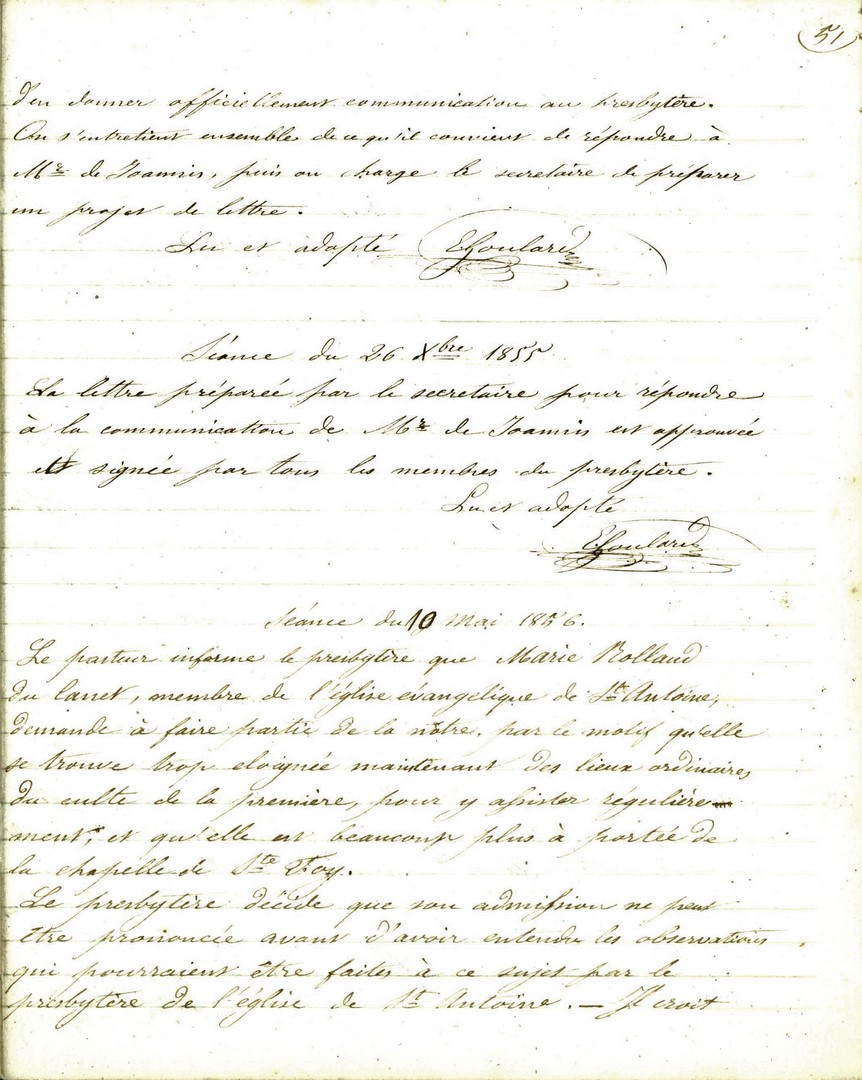 51
d'en donner officiellement communication au presbytère.
On s'entretient ensemble de ce qu'il convient de répondre à
Mr de Joannis, puis on charge le secretaire de préparer
un projet de lettre.
Lu et adopté EFoulard
Séance du 26 Xbre 1855
La lettre préparée par le secretaire pour répondre
à la communication de Mr de Joannis est approuvée
et signée par tous les membres du presbytère.
Lu et adopté
EFoulard
Séance du 10 Mai 1856.
Le pasteur informe le presbytère que Marie Rolland
du Canet, membre de l'église évangélique de St Antoine,
demande à faire partie de la nôtre, par le motif qu'elle
se trouve trop eloignée maintenant des lieux ordinaires
du culte de la première, pour y assister régulière
ment, et qu'elle est beaucoup plus à portée de
la chapelle de Ste Foy.
Le presbytère décide que son admission ne peut
être prononcée avant d'avoir entendu les observations
qui pourraient être faites à ce sujet par le
presbytère de l'église de St Antoine. — Il croit